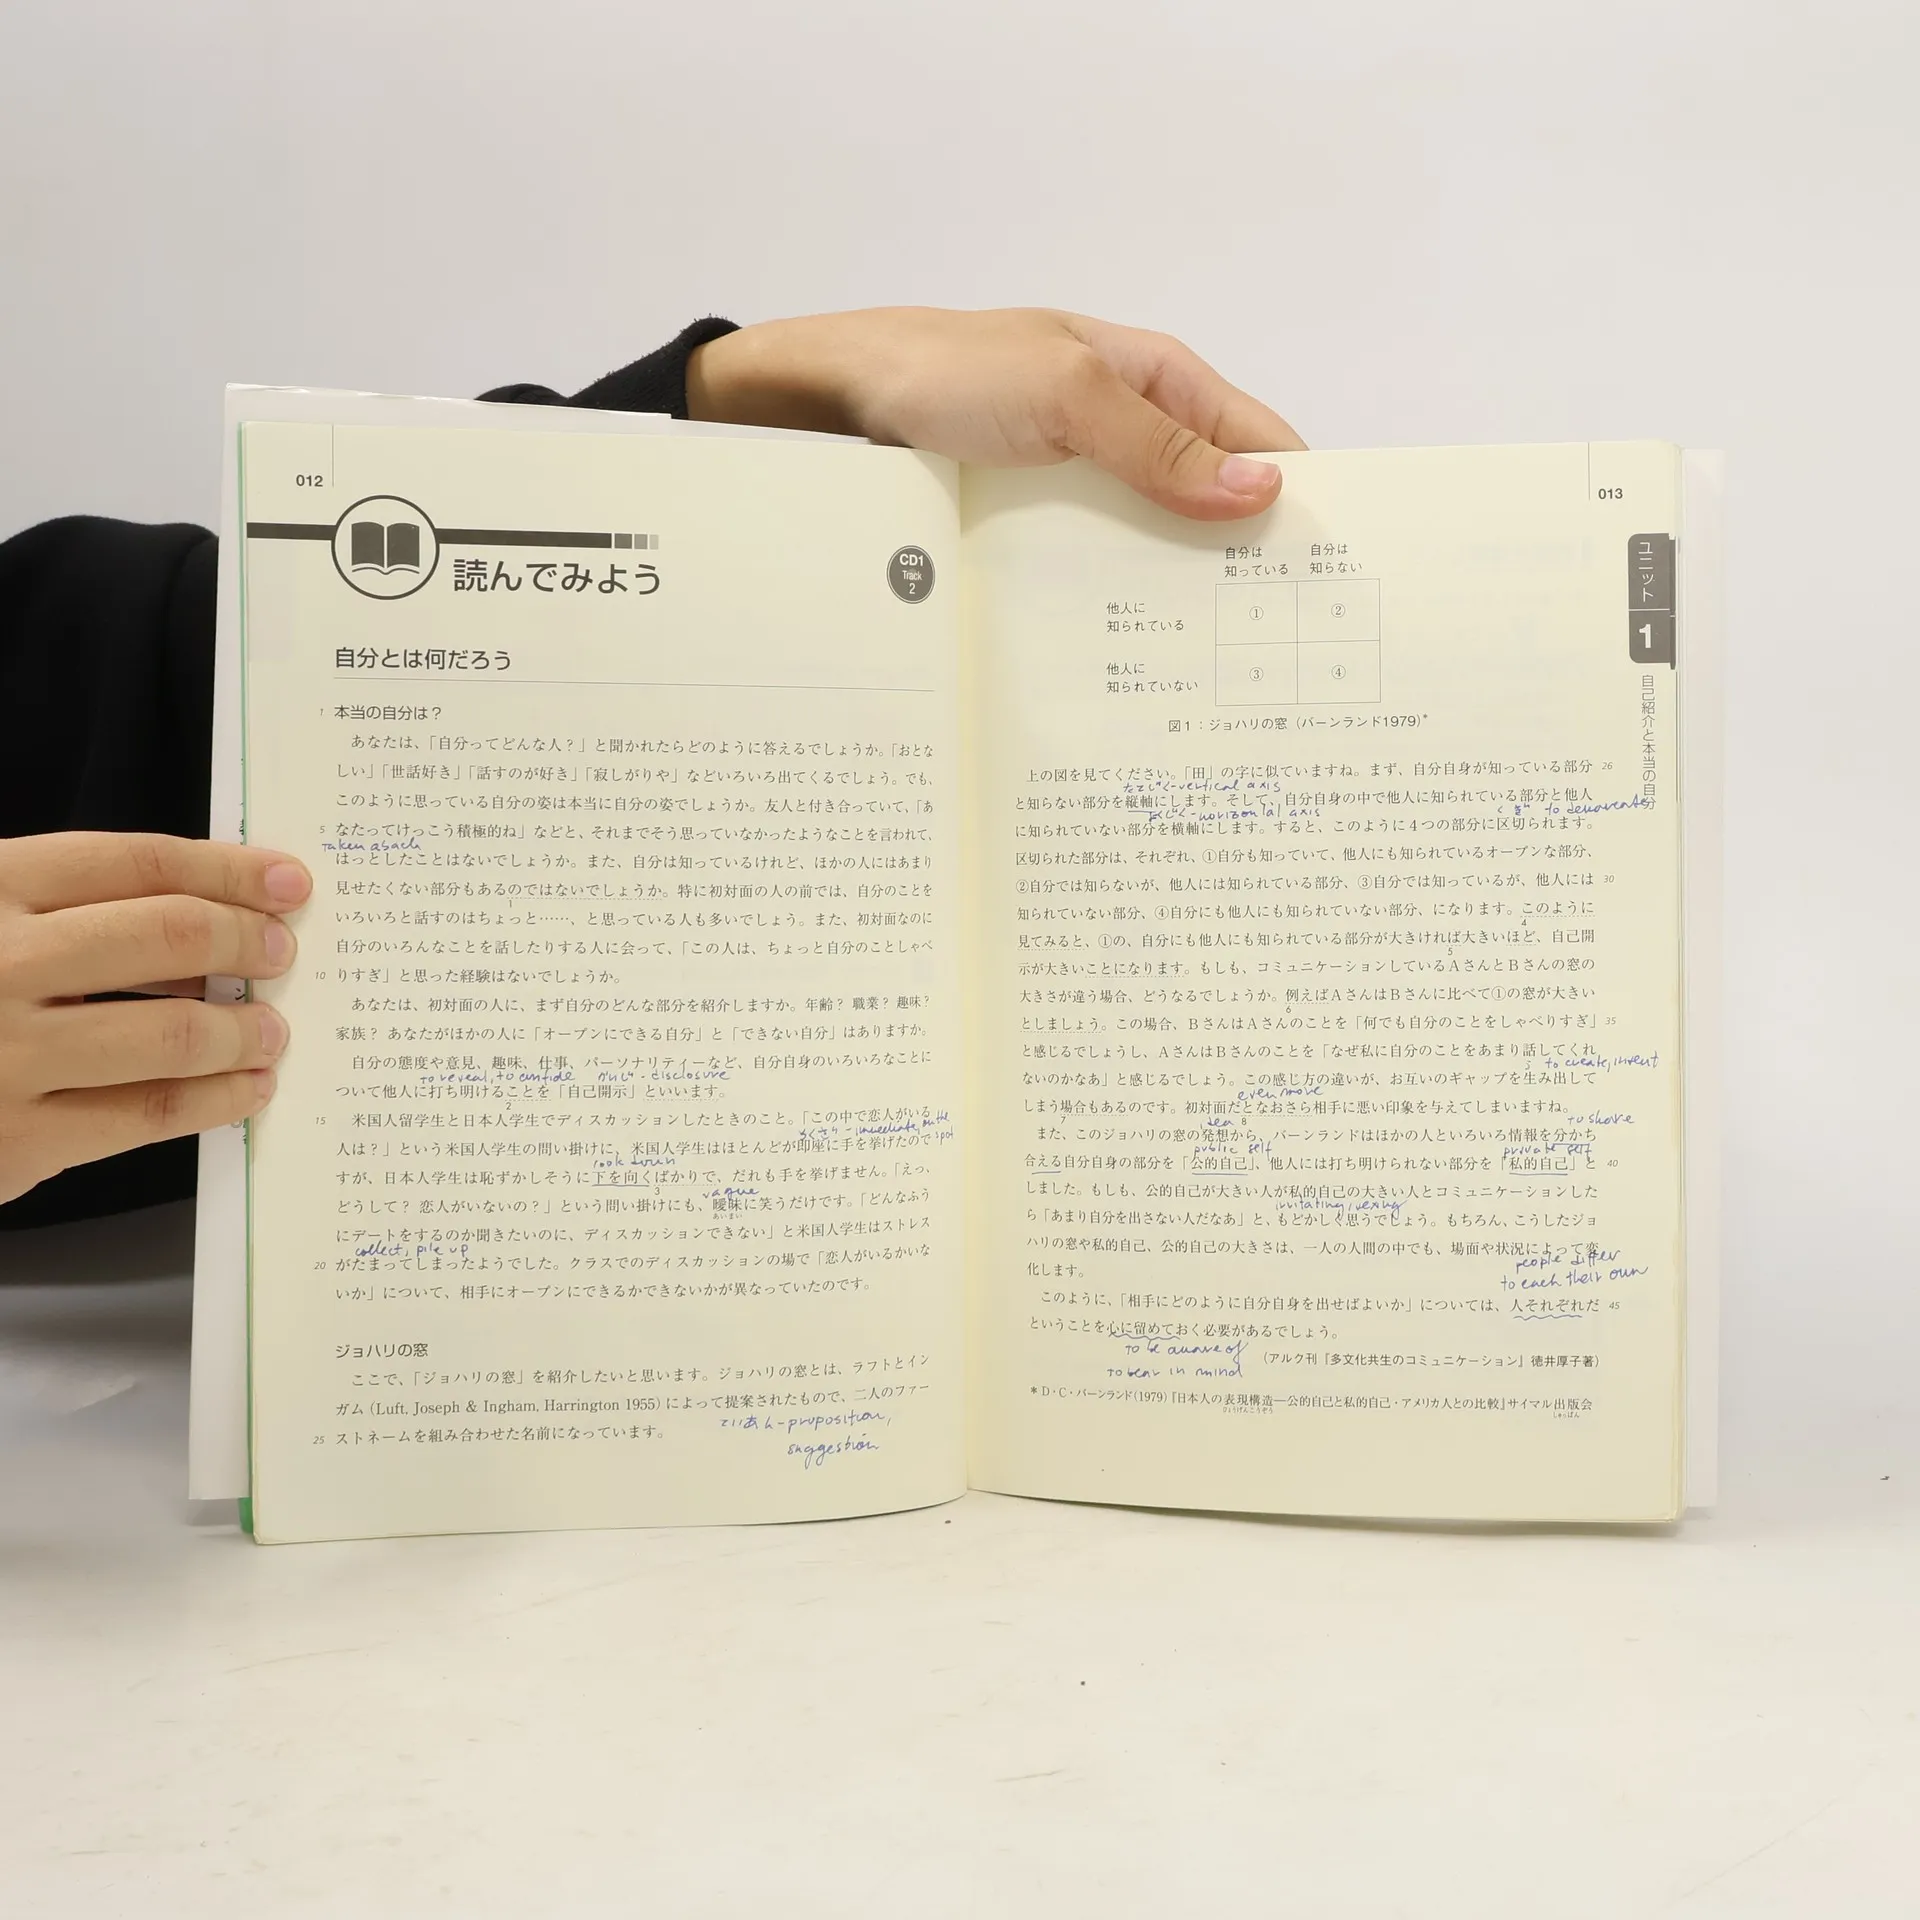 012
読んでみよう
CD1
Track
2
自分とは何だろう
1 本当の自分は？
あなたは、「自分ってどんな人？」と聞かれたらどのように答えるでしょうか。「おとな
しい」「世話好き」「話すのが好き」「寂しがりや」などいろいろ出てくるでしょう。でも、
このように思っている自分の姿は本当に自分の姿でしょうか。友人と付き合っていて、「あ
5 なたってけっこう積極的ね」などと、それまでそう思っていなかったようなことを言われて、
taken aback
はっとしたことはないでしょうか。また、自分は知っているけれど、ほかの人にはあまり
見せたくない部分もあるのではないでしょうか。特に初対面の人の前では、自分のことを
1
いろいろと話すのはちょっと……、と思っている人も多いでしょう。また、初対面なのに
自分のいろんなことを話したりする人に会って、「この人は、ちょっと自分のことしゃべ
10 りすぎ」と思った経験はないでしょうか。
あなたは、初対面の人に、まず自分のどんな部分を紹介しますか。年齢？ 職業？ 趣味？
家族？ あなたがほかの人に「オープンにできる自分」と「できない自分」はありますか。
自分の態度や意見、趣味、仕事、パーソナリティーなど、自分自身のいろいろなことに
to reveal, to confide かいじ - disclosure
ついて他人に打ち明けることを「自己開示」といいます。
2
15 米国人留学生と日本人学生でディスカッションしたときのこと。「この中で恋人がいる
そくざ - immediate, on the spot
人は？」という米国人学生の問い掛けに、米国人学生はほとんどが即座に手を挙げたので
look down
すが、日本人学生は恥ずかしそうに下を向くばかりで、だれも手を挙げません。「えっ、
3 vague
どうして？ 恋人がいないの？」という問い掛けにも、曖昧に笑うだけです。「どんなふう
あいまい
にデートをするのか聞きたいのに、ディスカッションできない」と米国人学生はストレス
collect, pile up
20 がたまってしまったようでした。クラスでのディスカッションの場で「恋人がいるかいな
いか」について、相手にオープンにできるかできないかが異なっていたのです。
ジョハリの窓
ここで、「ジョハリの窓」を紹介したいと思います。ジョハリの窓とは、ラフトとイン
ガム (Luft, Joseph & Ingham, Harrington 1955) によって提案されたもので、二人のファー
ていあん - proposition,
25 ストネームを組み合わせた名前になっています。
suggestion
013
ユニット
1
自己紹介と本当の自分
自分は 自分は
知っている 知らない
他人に
知られている
① ②
他人に
知られていない
③ ④
図1：ジョハリの窓（バーンランド1979）*
上の図を見てください。「田」の字に似ていますね。まず、自分自身が知っている部分 26
たてじく - vertical axis
と知らない部分を縦軸にします。そして、自分自身の中で他人に知られている部分と他人
よこじく - horizontal axis くぎ to demarcate
に知られていない部分を横軸にします。すると、このように４つの部分に区切られます。
区切られた部分は、それぞれ、①自分も知っていて、他人にも知られているオープンな部分、
②自分では知らないが、他人には知られている部分、③自分では知っているが、他人には 30
知られていない部分、④自分にも他人にも知られていない部分、になります。このように
4
見てみると、①の、自分にも他人にも知られている部分が大きければ大きいほど、自己開
5
示が大きいことになります。もしも、コミュニケーションしているＡさんとＢさんの窓の
大きさが違う場合、どうなるでしょうか。例えばＡさんはＢさんに比べて①の窓が大きい
6
としましょう。この場合、ＢさんはＡさんのことを「何でも自分のことをしゃべりすぎ」 35
と感じるでしょうし、ＡさんはＢさんのことを「なぜ私に自分のことをあまり話してくれ
to create, invent
ないのかなあ」と感じるでしょう。この感じ方の違いが、お互いのギャップを生み出して
even more
しまう場合もあるのです。初対面だとなおさら相手に悪い印象を与えてしまいますね。
7 idea 8 to share
また、このジョハリの窓の発想から、バーンランドはほかの人といろいろ情報を分かち
public self private self
合える自分自身の部分を「公的自己」、他人には打ち明けられない部分を「私的自己」と 40
しました。もしも、公的自己が大きい人が私的自己の大きい人とコミュニケーションした
irritating, vexing
ら「あまり自分を出さない人だなあ」と、もどかしく思うでしょう。もちろん、こうしたジョ
ハリの窓や私的自己、公的自己の大きさは、一人の人間の中でも、場面や状況によって変
people differ
化します。
to each their own
このように、「相手にどのように自分自身を出せばよいか」については、人それぞれだ 45
ということを心に留めておく必要があるでしょう。
to be aware of
（アルク刊『多文化共生のコミュニケーション』徳井厚子著）
to bear in mind
* D・C・バーンランド(1979)『日本人の表現構造―公的自己と私的自己・アメリカ人との比較』サイマル出版会
ひょうげんこうぞう しゅっぱん